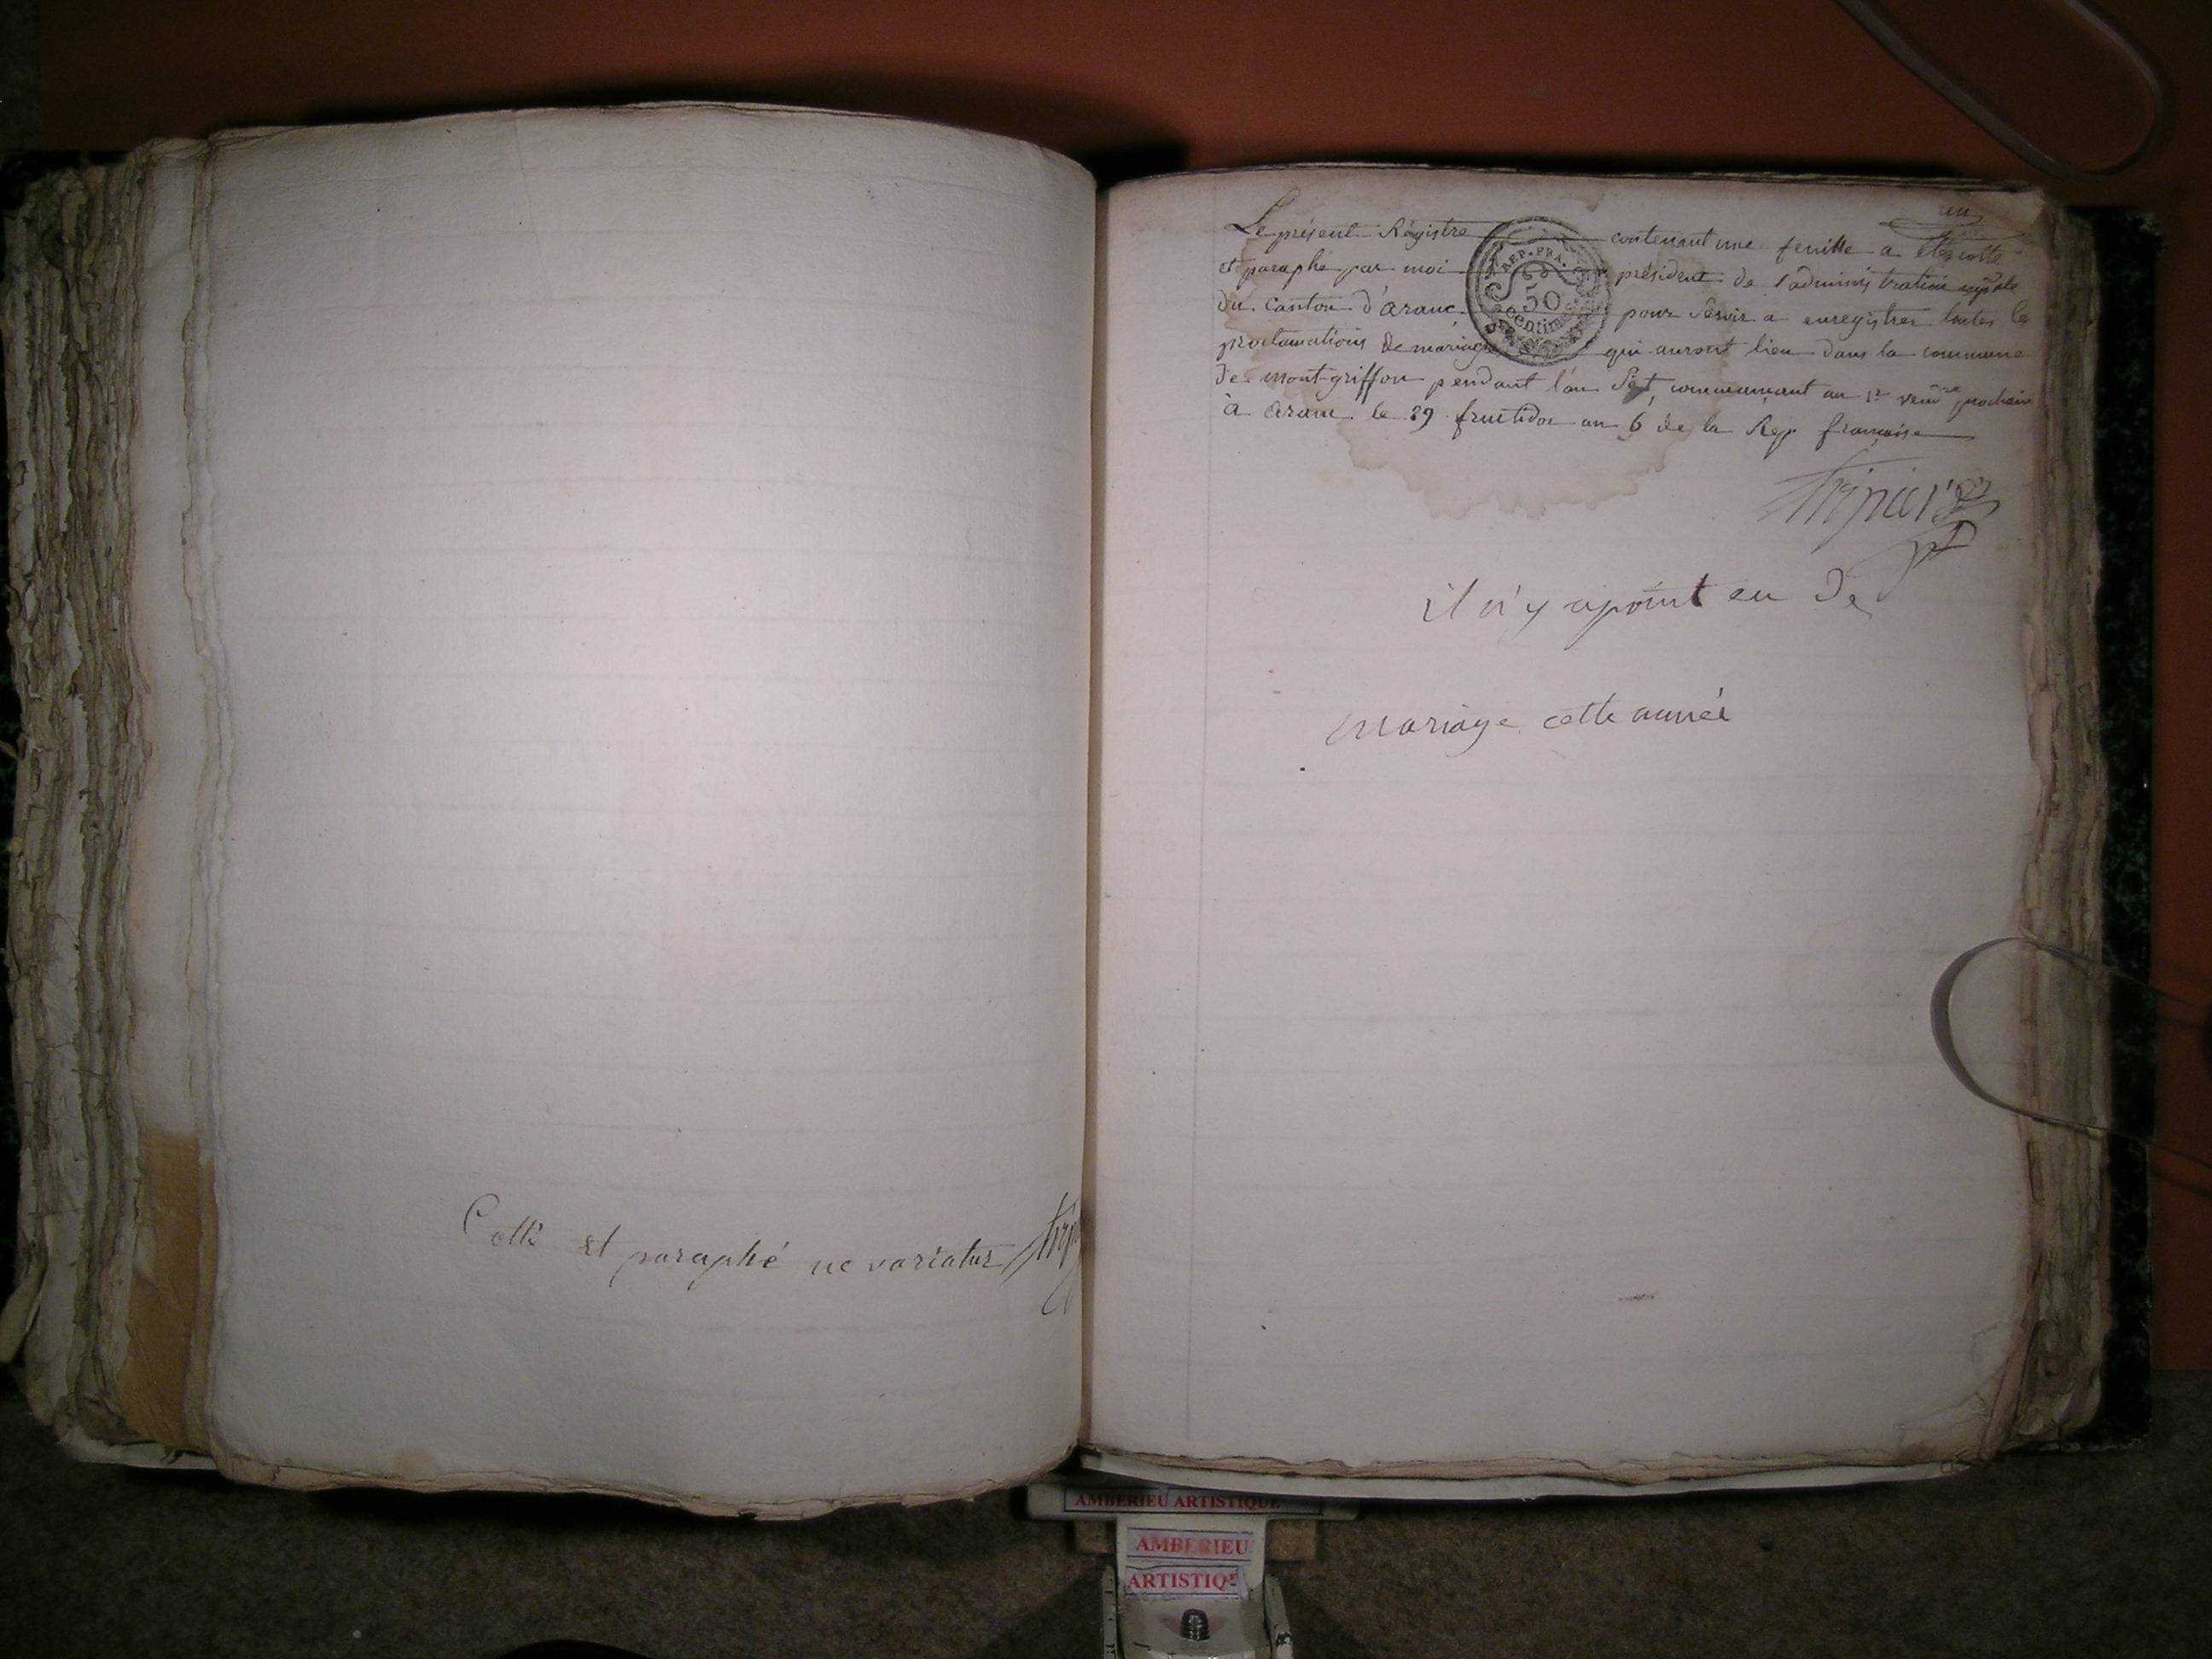 Cotté et paraphé ne variatur
un
Le présent Régistre contenant une feuille a été cotté
et paraphé par moi président de l'administration mp̃ale
du canton d'aranc pour servir a enregistrer toutes les
proclamations de mariage qui auront lieu dans la commune
de mont-griffon pendant l'an Sept, commençant au 1er vendre prochain
à aranc le 29 fructidor an 6 de la Rep française
REP. FRA.
50
centimes
il n'y a point eu De
mariage cette année
AMBERIEU ARTISTIQUE
AMBERIEU
ARTISTIQUE